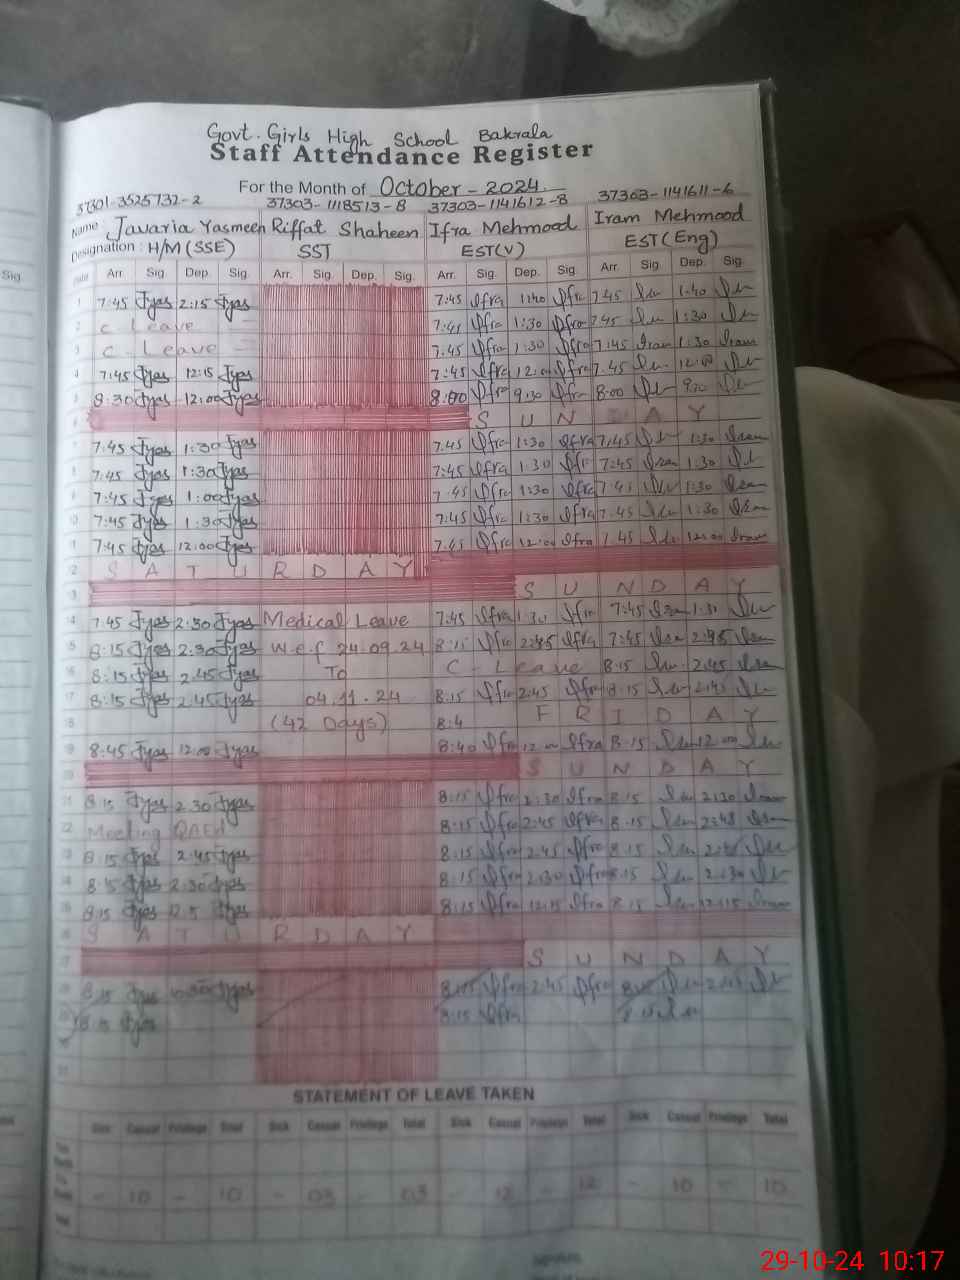 Govt. Girls High School Bakrala
Staff Attendance Register
For the Month of October - 2024.
37301-3525732-2 37303-1118513-8 37303-1141612-8 37303-1141611-6
Name Javaria Yasmeen Riffat Shaheen Ifra Mehmood Iram Mehmood
Designation : H/M (SSE) SST EST(V) EST (Eng)
Sig.
Date Arr. Sig. Dep. Sig. Arr. Sig. Dep. Sig. Arr. Sig. Dep. Sig. Arr. Sig. Dep. Sig.
1 7:45 Jyas 2:15 Jyas 7:45 Ifra 1:40 Ifra 7:45 1:40
2 C Leave 7:45 Ifra 1:30 Ifra 7:45 1:30
3 C - Leave - 7:45 Ifra 1:30 Ifra 7:45 Iram 1:30 Iram
4 7:45 Jyas 12:15 Jyas 7:45 Ifra 12:00 Ifra 7:45
5 8:30 Jyas 12:00 Jyas 8:00 Ifra 9:30 Ifra 8:00 9:30
6 S U N D A Y
7 7:45 Jyas 1:30 Jyas 7:45 Ifra 1:30 Ifra 7:45 1:30
8 7:45 Jyas 1:30 Jyas 7:45 Ifra 1:30 Ifra 7:45 1:30
9 7:45 Jyas 1:00 Jyas 7:45 Ifra 1:30 Ifra 7:45 1:30
10 7:45 Jyas 1:30 Jyas 7:45 Ifra 1:30 Ifra 7:45 1:30
11 7:45 Jyas 12:00 Jyas 7:45 Ifra 12:00 Ifra 7:45 12:00 Iram
12 S A T U R D A Y
13 S U N D A Y
14 7:45 Jyas 2:30 Jyas Medical Leave 7:45 Ifra 1:30 Ifra 7:45 1:30
15 8:15 Jyas 2:30 Jyas w.e.f 24.09.24 8:15 Ifra 2:45 Ifra 7:45 2:45
16 8:15 Jyas 2:45 Jyas To C - Leave 8:15 2:45
17 8:15 Jyas 2:45 Jyas 04.11.24 8:15 Ifra 2:45 Ifra 8:15 2:45
18 (42 Days) 8:4 F R I D A Y
19 8:45 Jyas 12:00 Jyas 8:40 Ifra 12:00 Ifra 8:15 12:00
20 S U N D A Y
21 8:15 Jyas 2:30 Jyas 8:15 Ifra 2:30 Ifra 8:15 2:30
22 Meeting QAED 8:15 Ifra 2:45 Ifra 8:15 2:45
23 8:15 Jyas 2:45 Jyas 8:15 Ifra 2:45 Ifra 8:15
24 8:15 Jyas 2:30 Jyas 8:15 Ifra 2:30 Ifra 8:15 2:30
25 8:15 Jyas Jyas 8:15 Ifra 12:15 Ifra 8:15 12:15
26 S A T U R D A Y
27 S U N D A Y
28 8:15 Jyas Jyas 8:15 Ifra 2:45 Ifra 2:45
29 8:15 Jyas 8:15 Ifra 8:15
STATEMENT OF LEAVE TAKEN
Sick Casual Privilege Total Sick Casual Privilege Total Sick Casual Privilege Total Sick Casual Privilege Total
- 10 - 10 - 03 - 03 - 12 - 12 - 10 - 10
29-10-24 10:17